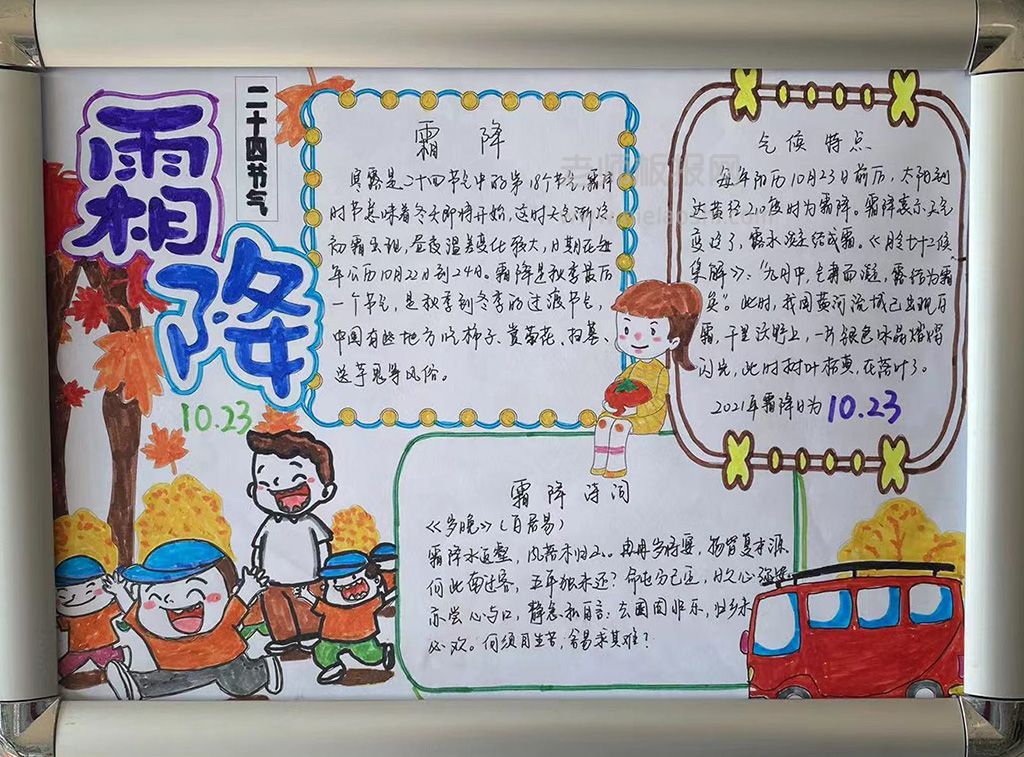 霜降
二十四节气
10.23
霜 降
寒露是二十四节气中的第18个节气,霜降
时节意味着冬天即将开始,这时天气渐冷、
初霜出现,昼夜温差变化较大,日期在每
年公历10月22日到24日。霜降是秋季最后
一个节气,是秋季到冬季的过渡节气,
中国有些地方吃柿子、赏菊花、扫墓、
送芋鬼等风俗。
气候特点
每年阳历10月23日前后,太阳到
达黄经210度时为霜降。霜降表示天气
更冷了,露水凝结成霜。《月令七十二候
集解》:“九月中,气肃而凝,露结为霜
矣”。此时,我国黄河流域已出现白
霜,千里沃野上,一片银色冰晶熠熠
闪光,此时树叶枯黄,在落叶了。
2021年霜降日为10.23
霜降诗词
《岁晚》(白居易)
霜降水返壑,风落木归山。冉冉岁将晏,物皆复本源
何此南迁客,五年独未还?命屯分已定,日久心弥
亦尝心与口,静念私自言:去国固非乐,归乡未
必欢。何须自生苦,舍易求其难?